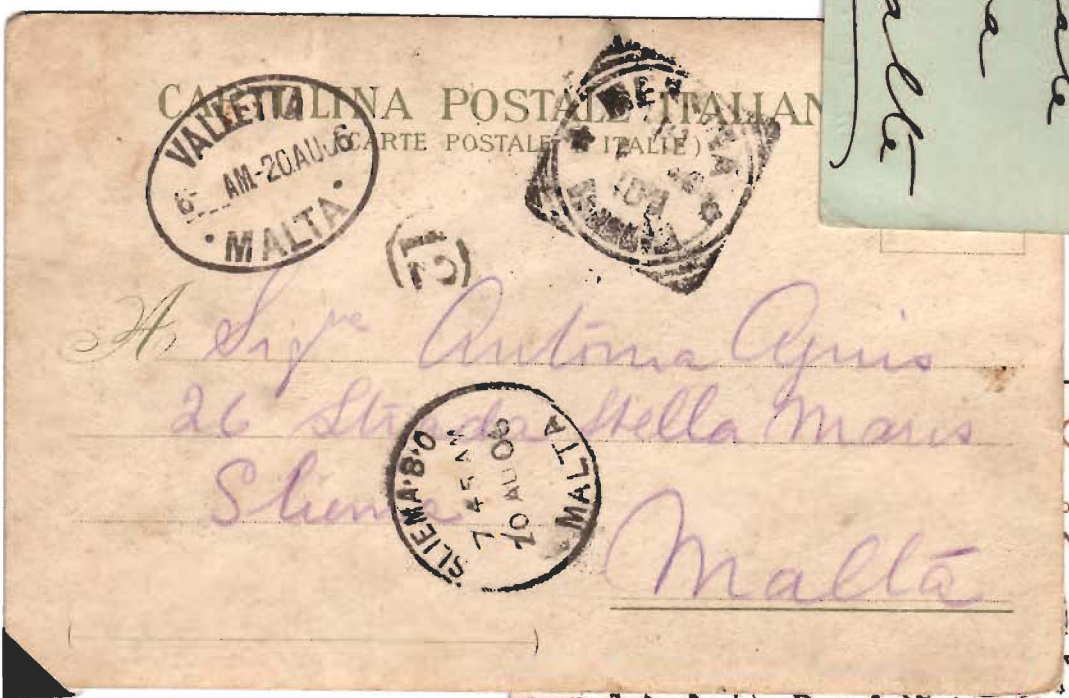 CARTOLINA POSTALE ITALIANA
(CARTE POSTALE ITALIE)
VALLETTA
AM-20AU06
MALTA
MESSINA
12
A Sigra Antonia Agius
26 Strada Stella Maris
Sliema
Malta
SLIEMA·B·O
7 45 AM
20 AU 06
MALTA
Malte